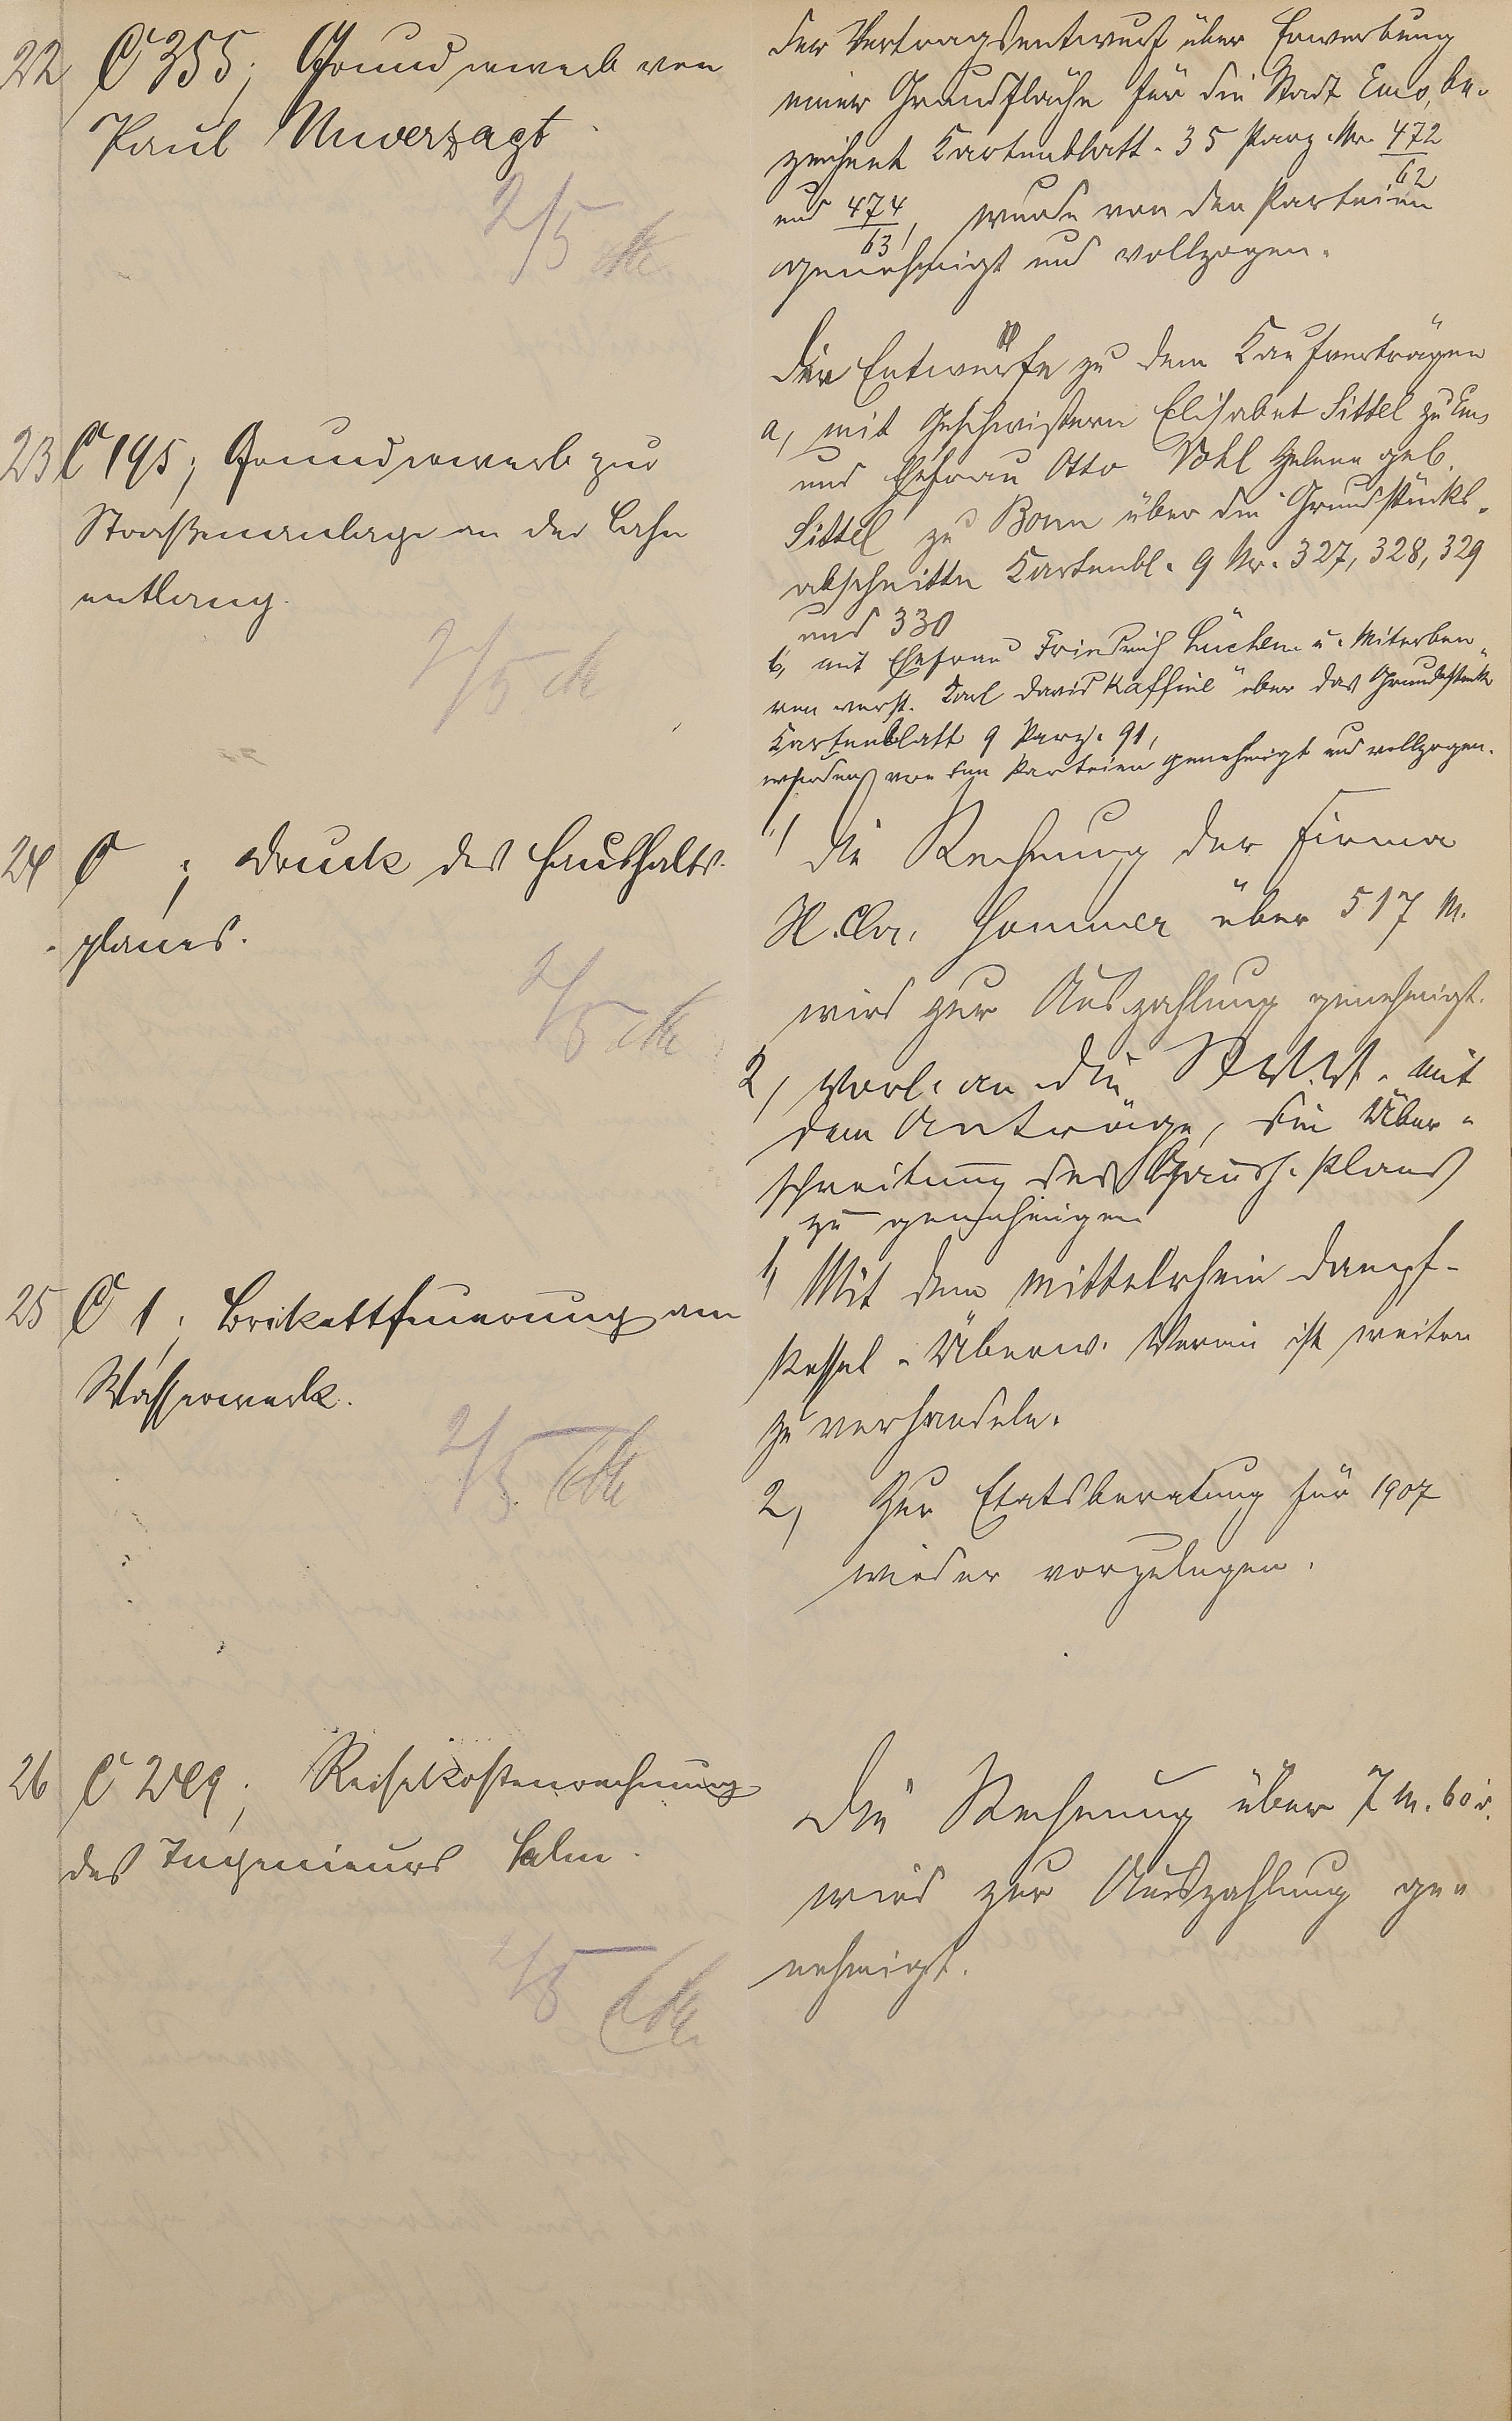 22 C 355; Grunderwerb von
Paul Unverzagt.
2/5
Der Vertragsentwurf über Erwerbung
einer Grundfläche für die Stadt Ems, be-
zeichnet Kartenblatt 35 Parz. Nr. 472/62
und 474/63, wurde von den Parteien
genehmigt und vollzogen.
23 C 195; Grunderwerb zur
Straßenanlage an der Lahn
entlang.
2/5
Die Entwürfe zu dem Kaufverträgen
a, mit Geschwistern Elisabet Sittel zu Ems
und Ehefrau Otto Vohl Helene geb.
Sittel zu Bonn über die Grundstücks-
abschnitte Kartenbl. 9 Nr. 327, 328, 329
und 330
b, mit Ehefrau Friedrich Lüchem u. Miterben
von verst. Karl David Kaffine über das Grundstück
Kartenblatt 9 Parz. 91,
wurden von den Parteien genehmigt und vollzogen.
24 C ; Druck des Haushalts-
planes.
2/5
1) Die Rechnung der Firma
H. Chr. Sommer über 517 M.
wird zur Auszahlung genehmigt.
2, Vorl. an die mit
dem Antrage, die Über-
schreitung des Haush. Plans
zu genehmigen
25 C 1; Brikettfeuerung am
Wasserwerk.
2/5
1, Mit dem Mittelrhein Dampf-
kessel-Überw. Verein ist weiter
zu verhandeln.
2, Zur Etatsberatung für 1907
wieder vorzulegen.
26 C ; Reisekostenrechnung
des Ingenieurs
2/5
Die Rechnung über 7 M. 60
wird zur Auszahlung ge-
nehmigt.